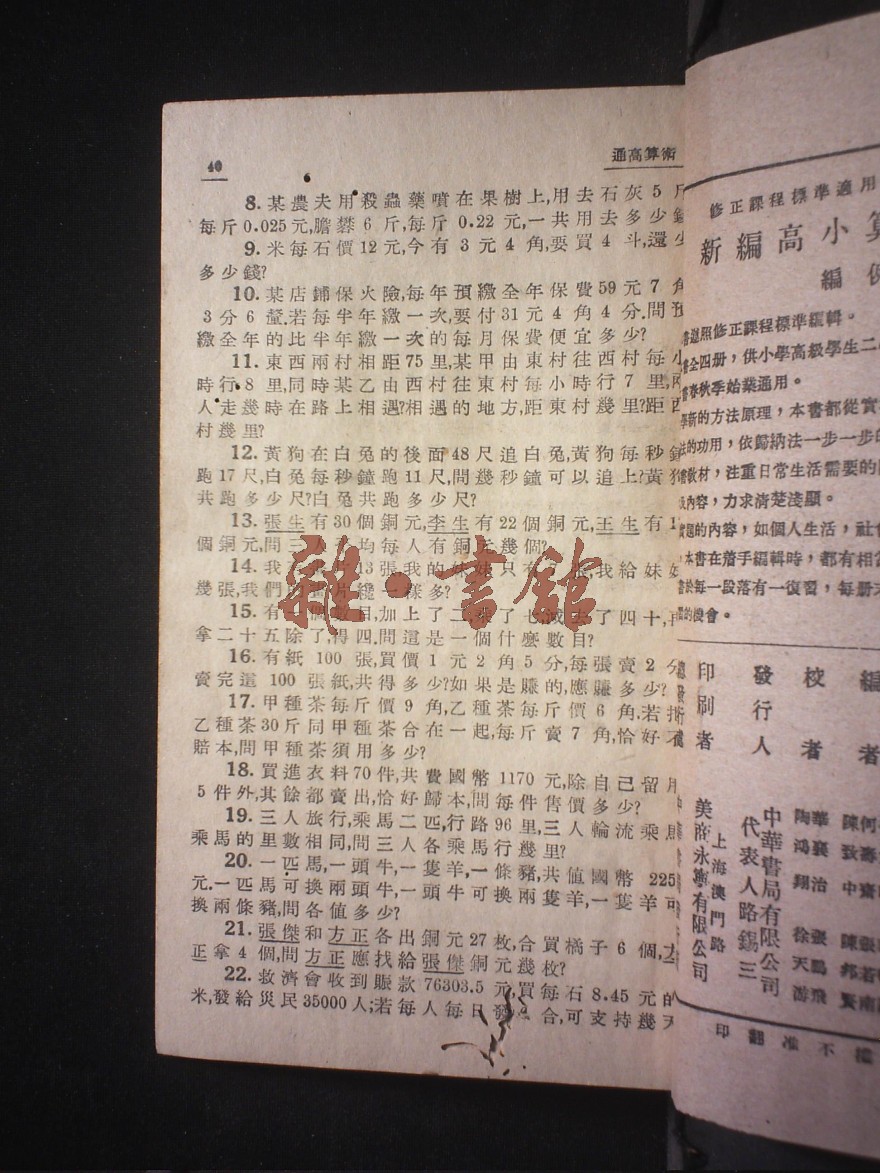 40
通高算術
8. 某農夫用殺蟲藥噴在果樹上,用去石灰5斤
每斤0.025元,膽礬6斤,每斤0.22元,一共用去多少錢
9. 米每石價12元,今有3元4角,要買4斗,還少
多少錢?
10. 某店鋪保火險,每年預繳全年保費59元7角
3分6釐.若每半年繳一次,要付31元4角4分.問預
繳全年的比半年繳一次的每月保費便宜多少?
11. 東西兩村相距75里,某甲由東村往西村每小
時行8里,同時某乙由西村往東村每小時行7里,兩
人走幾時在路上相遇?相遇的地方,距東村幾里?距西
村幾里?
12. 黃狗在白兔的後面48尺追白兔,黃狗每秒鐘
跑17尺,白兔每秒鐘跑11尺,問幾秒鐘可以追上?黃狗
共跑多少尺?白兔共跑多少尺?
13. 張生有30個銅元,李生有22個銅元,王生有1
個銅元,問三人平均每人有銅元幾個?
14. 我有 片13張我的妹妹只有 張,我給妹妹
幾張,我們的 片纔一樣多?
15. 有一個數目,加上了二,乘了七,減去了四十,再
拿二十五除了,得四.問這是一個什麼數目?
16. 有紙100張,買價1元2角5分,每張賣2分
賣完這100張紙,共得多少?如果是賺的,應賺多少?
17. 甲種茶每斤價9角,乙種茶每斤價6角.若把
乙種茶30斤同甲種茶合在一起,每斤賣7角,恰好不
賠本,問甲種茶須用多少?
18. 買進衣料70件,共費國幣1170元,除自己留用
5件外,其餘都賣出,恰好歸本,問每件售價多少?
19. 三人旅行,乘馬二匹,行路96里,三人輪流乘馬
乘馬的里數相同,問三人各乘馬行幾里?
20. 一匹馬,一頭牛,一隻羊,一條豬,共值國幣225
元.一匹馬可換兩頭牛,一頭牛可換兩隻羊,一隻羊可
換兩條豬,問各值多少?
21. 張傑和方正各出銅元27枚,合買橘子6個,方
正拿4個,問方正應找給張傑銅元幾枚?
22. 救濟會收到賑款76303.5元,買每石8.45元的
米,發給災民35000人;若每人每日發 合,可支持幾天
雜·書館
修正課程標準適用
新編高小算
編
書遵照修正課程標準編輯。
書全四册,供小學高級學生二
書春秋季始業適用。
學新的方法原理,本書都從實
法的功用,依歸納法一步一步的
書教材,注重日常生活需要的
內容,力求清楚淺顯。
題的內容,如個人生活,社會
本書在着手編輯時,都有相當
書於每一段落有一復習,每册末
的機會。
編者
校者
陶鴻翔
華襄治
發行人
中華書局有限公司
代表人路錫三
印刷者
上海澳門路
美商永寧有限公司
印翻准不